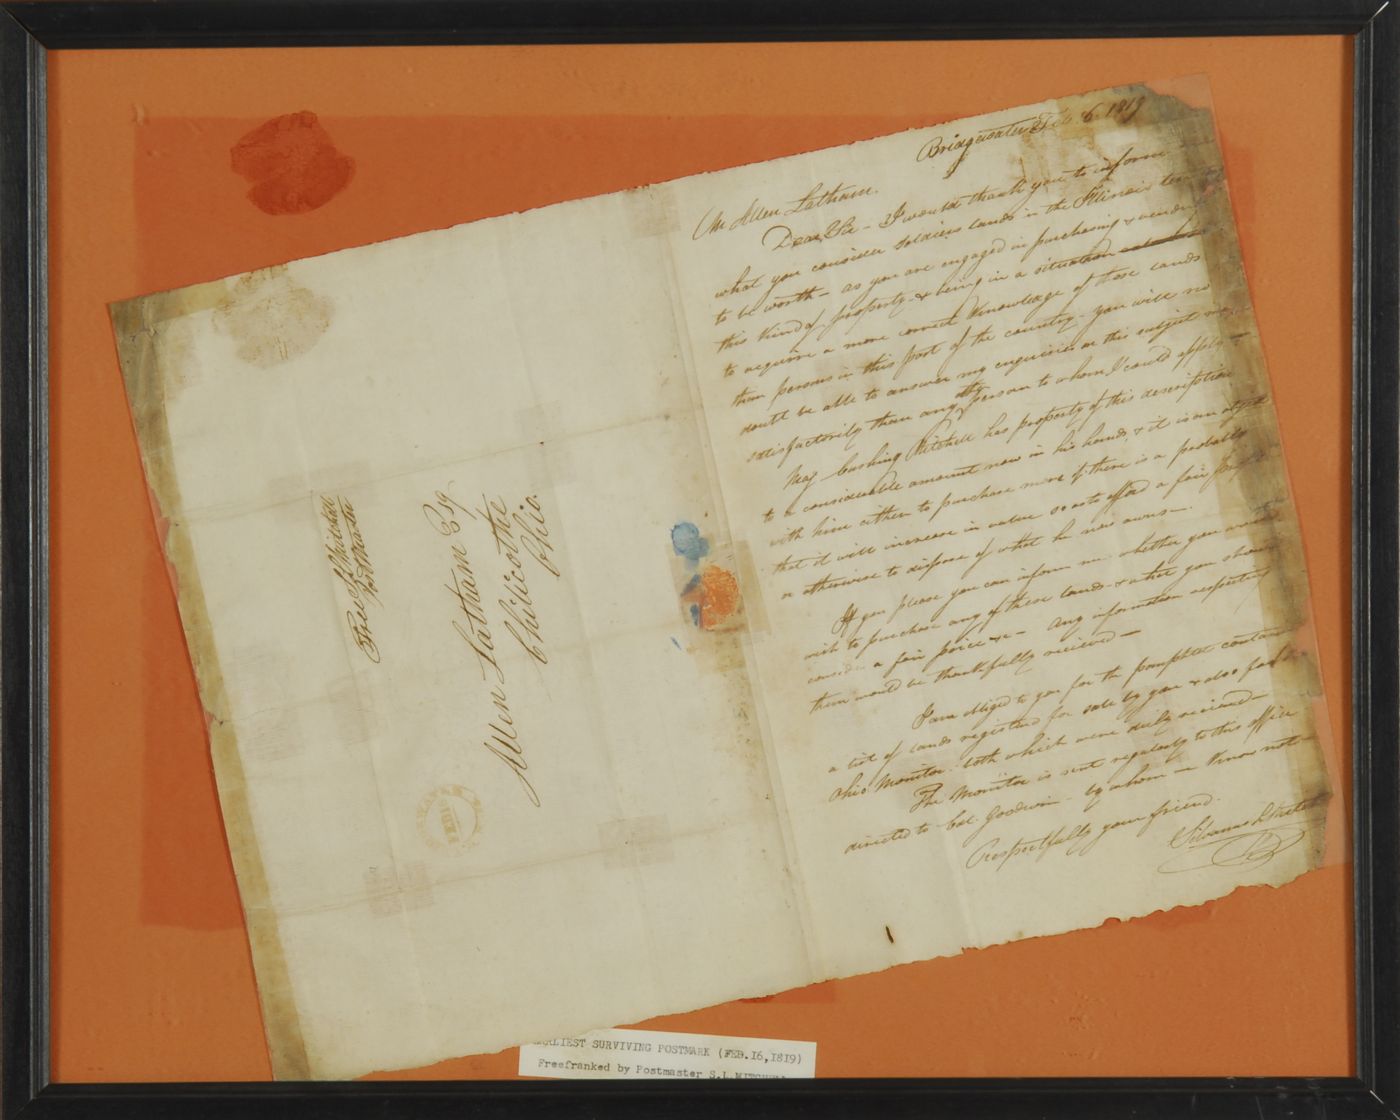 Bridgewater Feb 6. 1819
Mr Allen Latham.
Dear Sir - I would thank you to inform
what you consider soldiers lands in the Illinois
to be worth - as you are engaged in purchasing & vending
this kind of property - & being in a situation
to acquire a more correct knowledge of those lands
than persons in this part of the country - you will no
doubt be able to answer my enquiries on this subject
satisfactorily than any other person to whom I could apply -
Maj Cushing Mitchell has property of this description
to a considerable amount now in his hands, & it is an object
with him either to purchase more if there is a probability
that it will increase in value so as to afford a fair
or otherwise to dispose of what he now owns -.
If you please you can inform me whether you would
wish to purchase any of these lands - & what you should
consider a fair price &c - any information respecting
them would be thankfully recieved -
I am obliged to you for the pamphlet
a list of lands registered for sale by you & also for the
Ohio Monitor - both which were duly recieved -
The Monitor is sent regularly to this office
directed to Col. Goodwin - by whom we know not -
Respectfully your friend.
Silvanus L Mitchell
Free S L Mitchell
Post Master
Allen Latham Esq
Chillicothe
Ohio.
FEB 16
EARLIEST SURVIVING POSTMARK (FEB.16,1819)
Freefranked by Postmaster S.L.MITCHELL